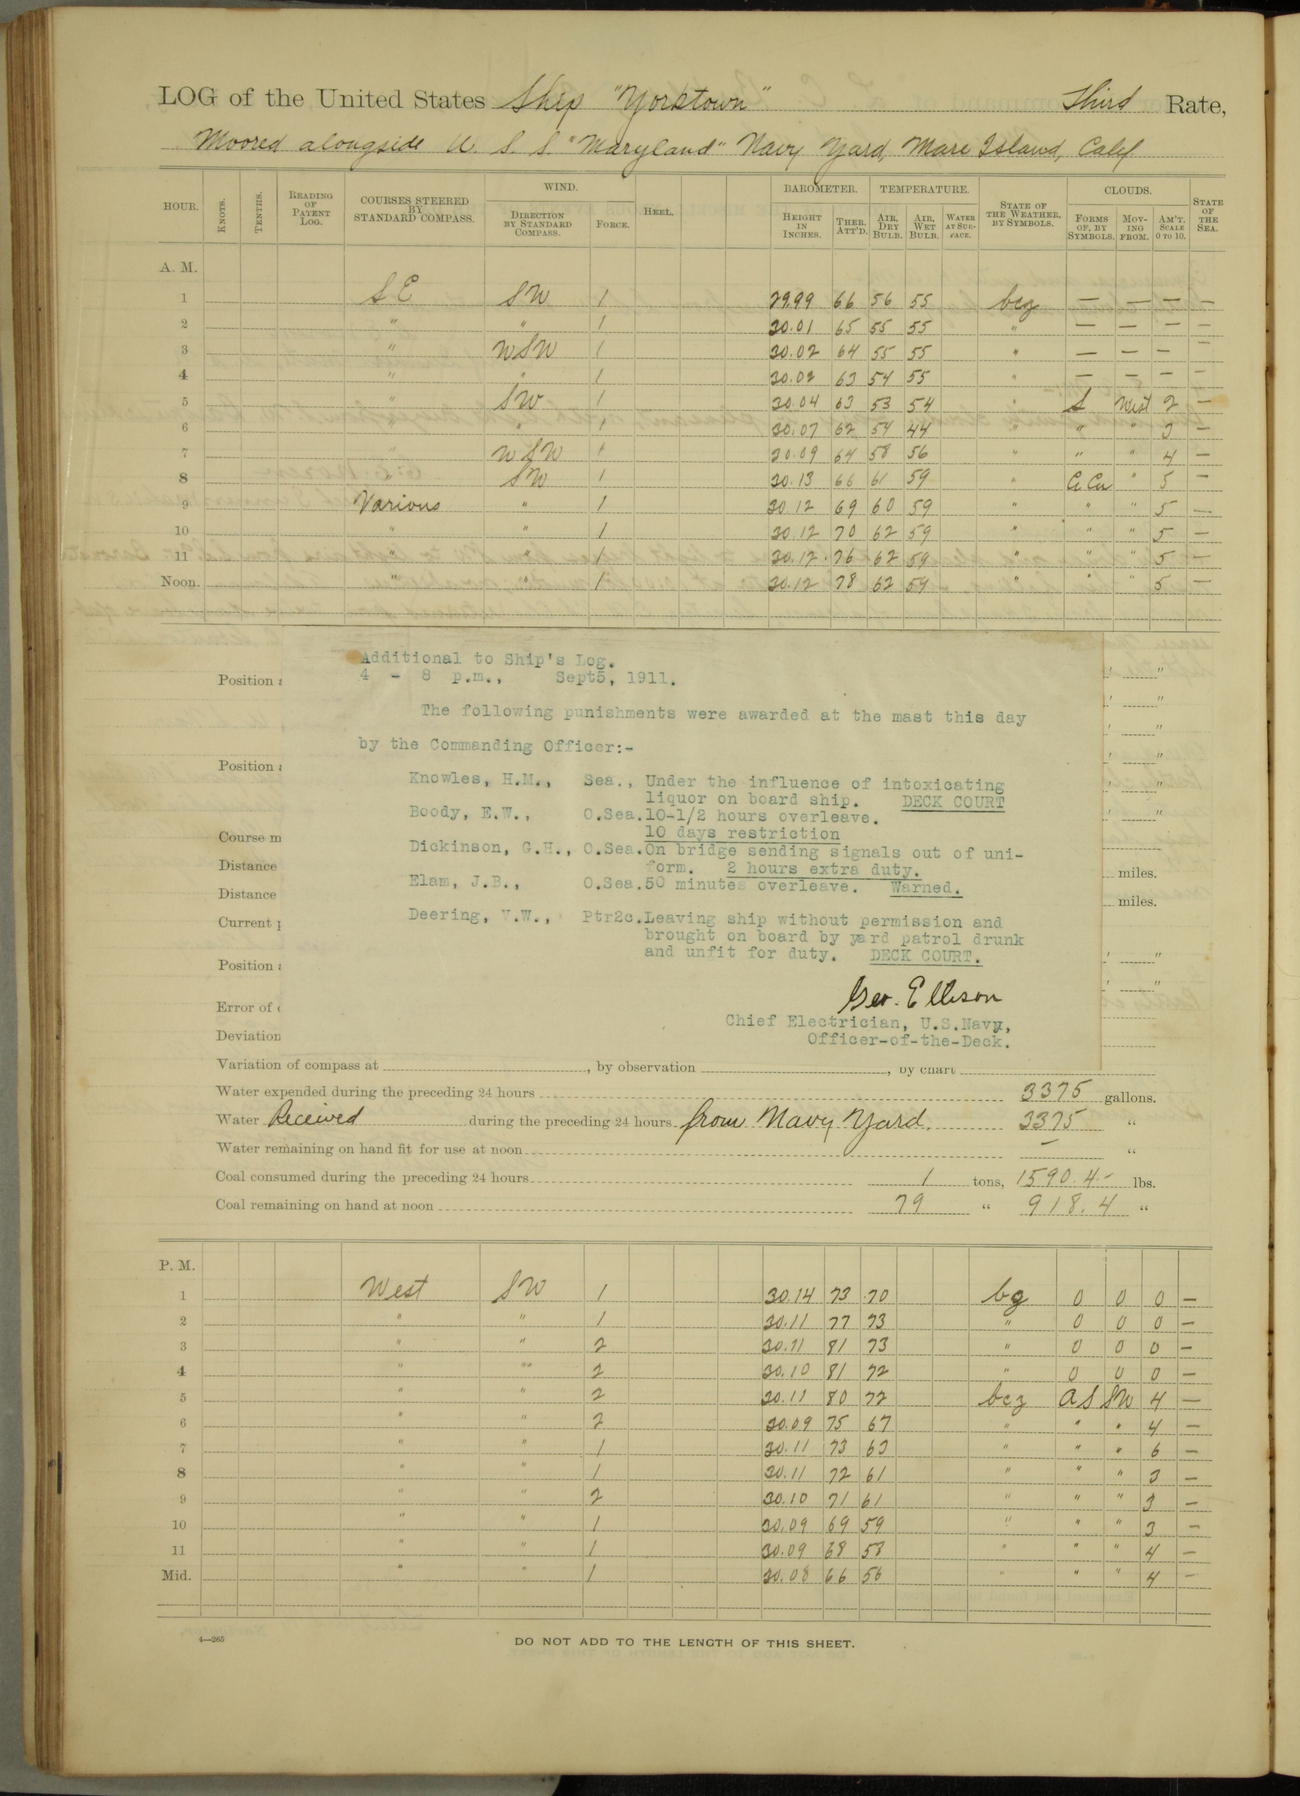 LOG of the United States Ship "Yorktown" Third Rate,
Moored alongside U. S. S. "Maryland" Navy Yard, Mare Island, Calif
HOUR. KNOTS. TENTHS. READING OF PATENT LOG. COURSES STEERED BY STANDARD COMPASS. WIND. DIRECTION BY STANDARD COMPASS. FORCE. HEEL. BAROMETER. HEIGHT IN INCHES. THER. ATT'D. TEMPERATURE. AIR, DRY BULB. AIR, WET BULB. WATER AT SURFACE. STATE OF THE WEATHER, BY SYMBOLS. CLOUDS. FORMS OF, BY SYMBOLS. MOVING FROM. AM'T. SCALE 0 TO 10. STATE OF THE SEA.
A. M.
1 S E SW 1 29.99 66 56 55 bcz — — — —
2 " " 1 30.01 65 55 55 " — — — —
3 " WSW 1 30.02 64 55 55 " — — — —
4 " " 1 30.02 63 54 55 " — — — —
5 " SW 1 30.04 63 53 54 " S West 2 —
6 " " 1 30.07 62 54 44 " " " 3 —
7 " WSW 1 30.09 64 58 56 " " " 4 —
8 SW 1 30.13 66 61 59 " Ci Cu " 5 —
9 Various " 1 30.12 69 60 59 " " " 5 —
10 " " 1 30.12 70 62 59 " " " 5 —
11 " " 1 30.12 76 62 59 " " " 5 —
Noon. " " 1 30.12 78 62 59 " " " 5 —
Additional to Ship's Log.
4 - 8 p.m., Sept5, 1911.
The following punishments were awarded at the mast this day
by the Commanding Officer:-
Knowles, H.M., Sea., Under the influence of intoxicating
liquor on board ship. DECK COURT
Boody, E.W., O.Sea.10-1/2 hours overleave.
10 days restriction
Dickinson, G.H., O.Sea.On bridge sending signals out of uni-
form. 2 hours extra duty.
Elam, J.B., O.Sea.50 minutes overleave. Warned.
Deering, V.W., Ptr2c.Leaving ship without permission and
brought on board by yard patrol drunk
and unfit for duty. DECK COURT.
Geo. Ellison
Chief Electrician, U.S.Navy,
Officer-of-the-Deck.
Position
Position
Course
Distance miles.
Distance miles.
Current
Position
Error of
Deviation
Variation of compass at , by observation , by chart
Water expended during the preceding 24 hours 3375 gallons.
Water Received during the preceding 24 hours from Navy Yard. 3375 "
Water remaining on hand fit for use at noon — "
Coal consumed during the preceding 24 hours 1 tons, 1590.4 lbs.
Coal remaining on hand at noon 79 " 918.4 "
P. M.
1 West SW 1 30.14 73 70 bg 0 0 0 —
2 " " 1 30.11 77 73 " 0 0 0 —
3 " " 2 30.11 81 73 " 0 0 0 —
4 " " 2 30.10 81 72 " 0 0 0 —
5 " " 2 30.11 80 72 bcz AS SW 4 —
6 " " 2 30.09 75 67 " " " 4 —
7 " " 1 30.11 73 63 " " " 6 —
8 " " 1 30.11 72 61 " " " 3 —
9 " " 2 30.10 71 61 " " " 3 —
10 " " 1 30.09 69 59 " " " 3 —
11 " " 1 30.09 68 58 " " " 4 —
Mid. " " 1 30.08 66 56 " " " 4 —
4—265
DO NOT ADD TO THE LENGTH OF THIS SHEET.